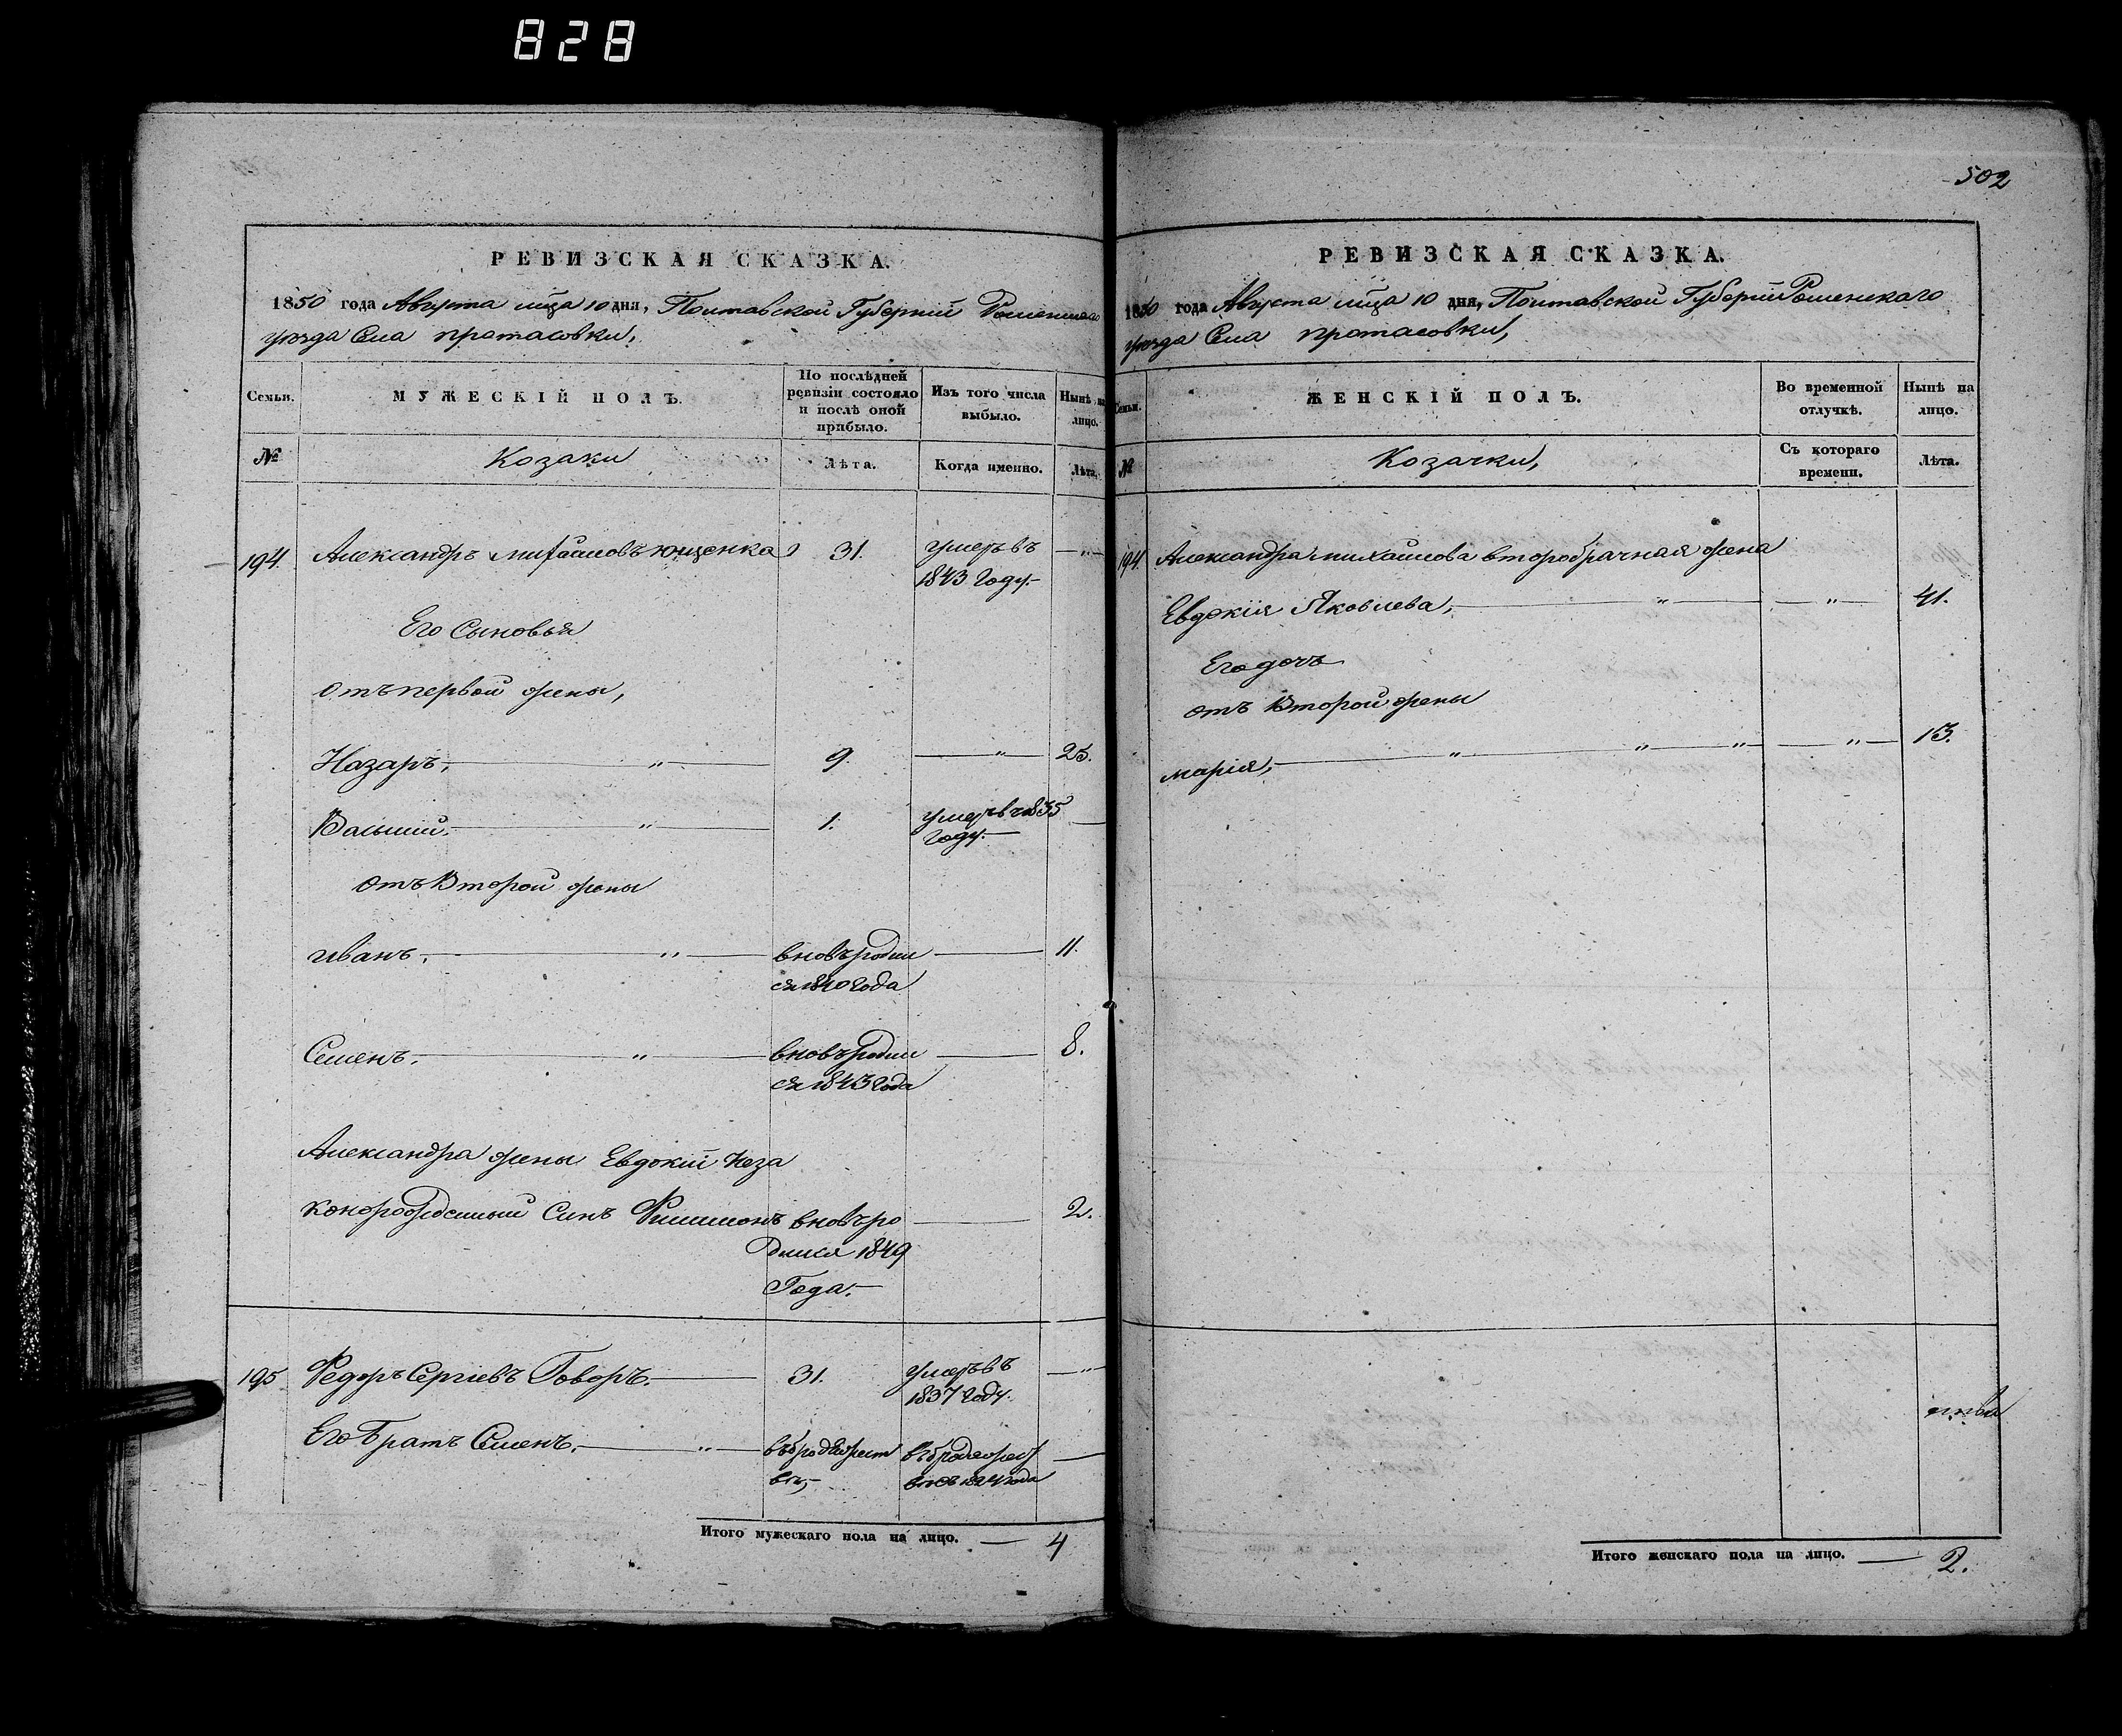 828
РЕВИЗСКАЯ СКАЗКА.
1850 года Августа мца 10 дня, Полтавской Губерніи Роменского
уезда Села протасовки,
Семьи.
МУЖЕСКІЙ ПОЛЪ.
По послѣдней ревизіи состояло и послѣ оной прибыло.
Изъ того числа выбыло.
Нынѣ на лицо.
№
Козаки
Лѣта.
Когда именно.
Лѣта.
194. Александръ михайловъ ющенка 31. умеръ въ — „ —
1843 Году.
Его Сыновья
отъ первой жены,
Назаръ, — „ — 9. — „ — 25.
Василий. — „ — 1. умеръ в 1835 —
Году. —
отъ Второй жены
иванъ, — „ — вновь родил — 11.
ся 1840 года
Семенъ. — „ — вновь родил — 8.
ся 1843 года
Александра жены Евдокіи неза
конорожденный Синъ Филимонъ вновь ро — 2.
дился 1849
Года. —
195 Федоръ Сергіевъ Говоръ. — 31. умеръ въ — „
1837 году.
Его братъ Семенъ. — „ — въ бродяжест въ бродяжест —
вѣ, — вѣ съ 1824 года
Итого мужескаго пола на лицо. — 4
502
РЕВИЗСКАЯ СКАЗКА.
1850 года Августа мца 10 дня, Полтавской Губерніи Роменского
уезда Села протасовки,
Семьи.
ЖЕНСКІЙ ПОЛЪ.
Во временной отлучкѣ.
Нынѣ на лицо.
№
Козачки,
Съ котораго времени.
Лѣта.
194. Александра михайлова второбрачная жена
Евдокія Яковлева, — „ — „ — 41.
Его дочь
отъ Второй жены
марія, — „ — „ — „ — „ — 13.
Итого женскаго пола на лицо. — 2.